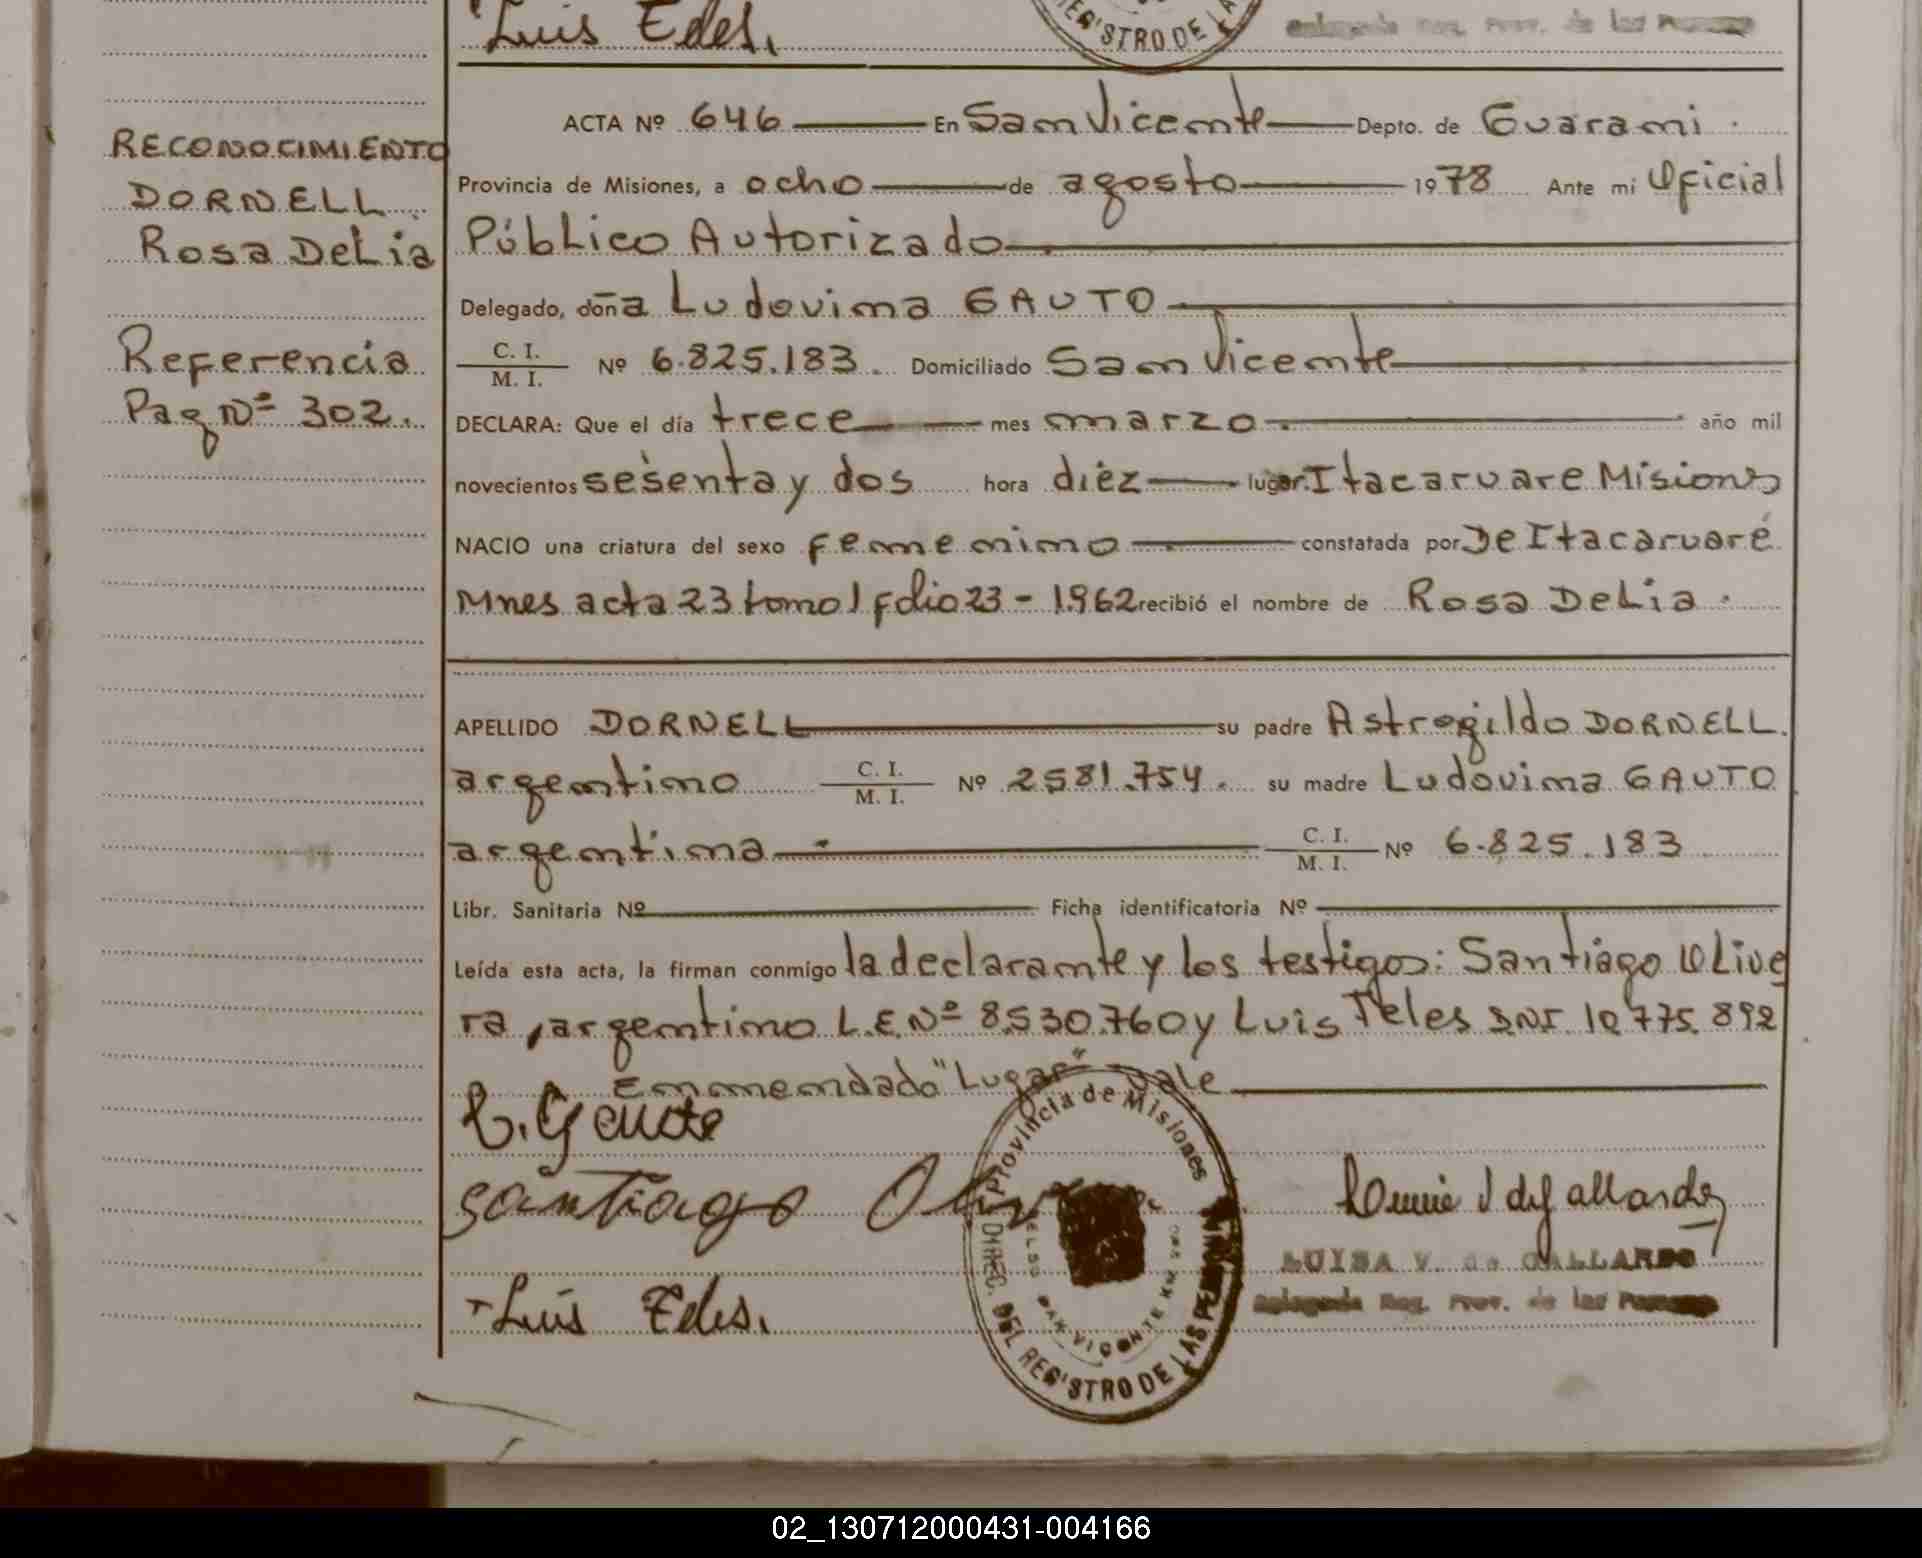 Luis Edes.
REGISTRO DE LA
ACTA Nº 646 En San Vicente Depto. de Guarani
RECONOCIMIENTO
DORNELL
Rosa DeLia
Provincia de Misiones, a ocho de agosto 1978 Ante mi Oficial
Público Autorizado
Delegado, doña Ludovina GAUTO
Referencia
Pag Nº 302.
C. I.
M. I. Nº 6.825.183. Domiciliado San Vicente
DECLARA: Que el día trece mes marzo año mil
novecientos sesenta y dos hora diez lugar Itacaruare Misiones
NACIO una criatura del sexo femenino constatada por De Itacaruaré
Mnes acta 23 tomo 1 folio 23 - 1962 recibió el nombre de Rosa DeLia.
APELLIDO DORNELL su padre Astrogildo DORNELL.
argentino C. I. M. I. Nº 2581.754. su madre Ludovina GAUTO
argentina C. I. M. I. Nº 6.825.183
Libr. Sanitaria Nº Ficha identificatoria Nº
Leída esta acta, la firman conmigo la declarante y los testigos: Santiago Olive
ra, argentino L.E.Nº 8530.760 y Luis Teles DNI. 10775.892
Enmendado "Lugar" Vale
L. Gauto
Santiago
Luis Edes.
Provincia de Misiones
DIREC. DEL REGISTRO DE LAS PERSONAS
SAN VICENTE
LUISA V. de GALLARDO
Delegada Reg. Prov. de las Personas
02_130712000431-004166